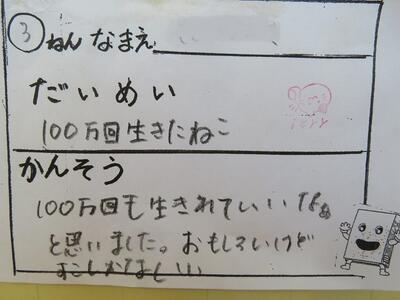 3ねん なまえ
だいめい
100万回生きたねこ
かんそう
100万回も生きれていいなぁ
と思いました。おもしろいけど
すこしかなしい